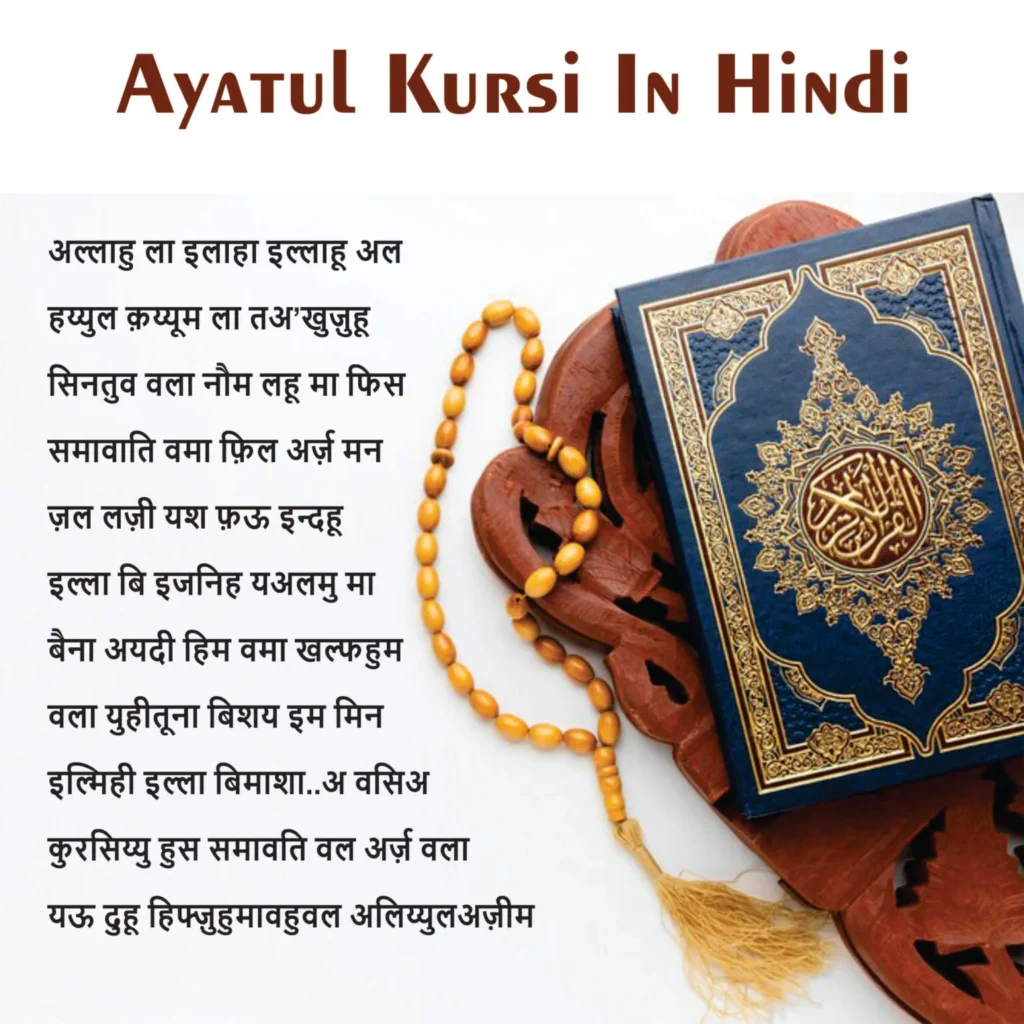 Ayatul Kursi In Hindi
अल्लाहु ला इलाहा इल्लाहू अल
हय्युल क़य्यूम ला तअ’खुज़ुहू
सिनतुव वला नौम लहू मा फिस
समावाति वमा फ़िल अर्ज़ मन
ज़ल लज़ी यश फ़ऊ इन्दहू
इल्ला बि इजनिह यअलमु मा
बैना अयदी हिम वमा खल्फहुम
वला युहीतूना बिशय इम मिन
इल्मिही इल्ला बिमाशा..अ वसिअ
कुरसिय्यु हुस समावति वल अर्ज़ वला
यऊ दुहू हिफ्ज़ुहुमावहुवल अलिय्युलअज़ीम
القرآن الكريم